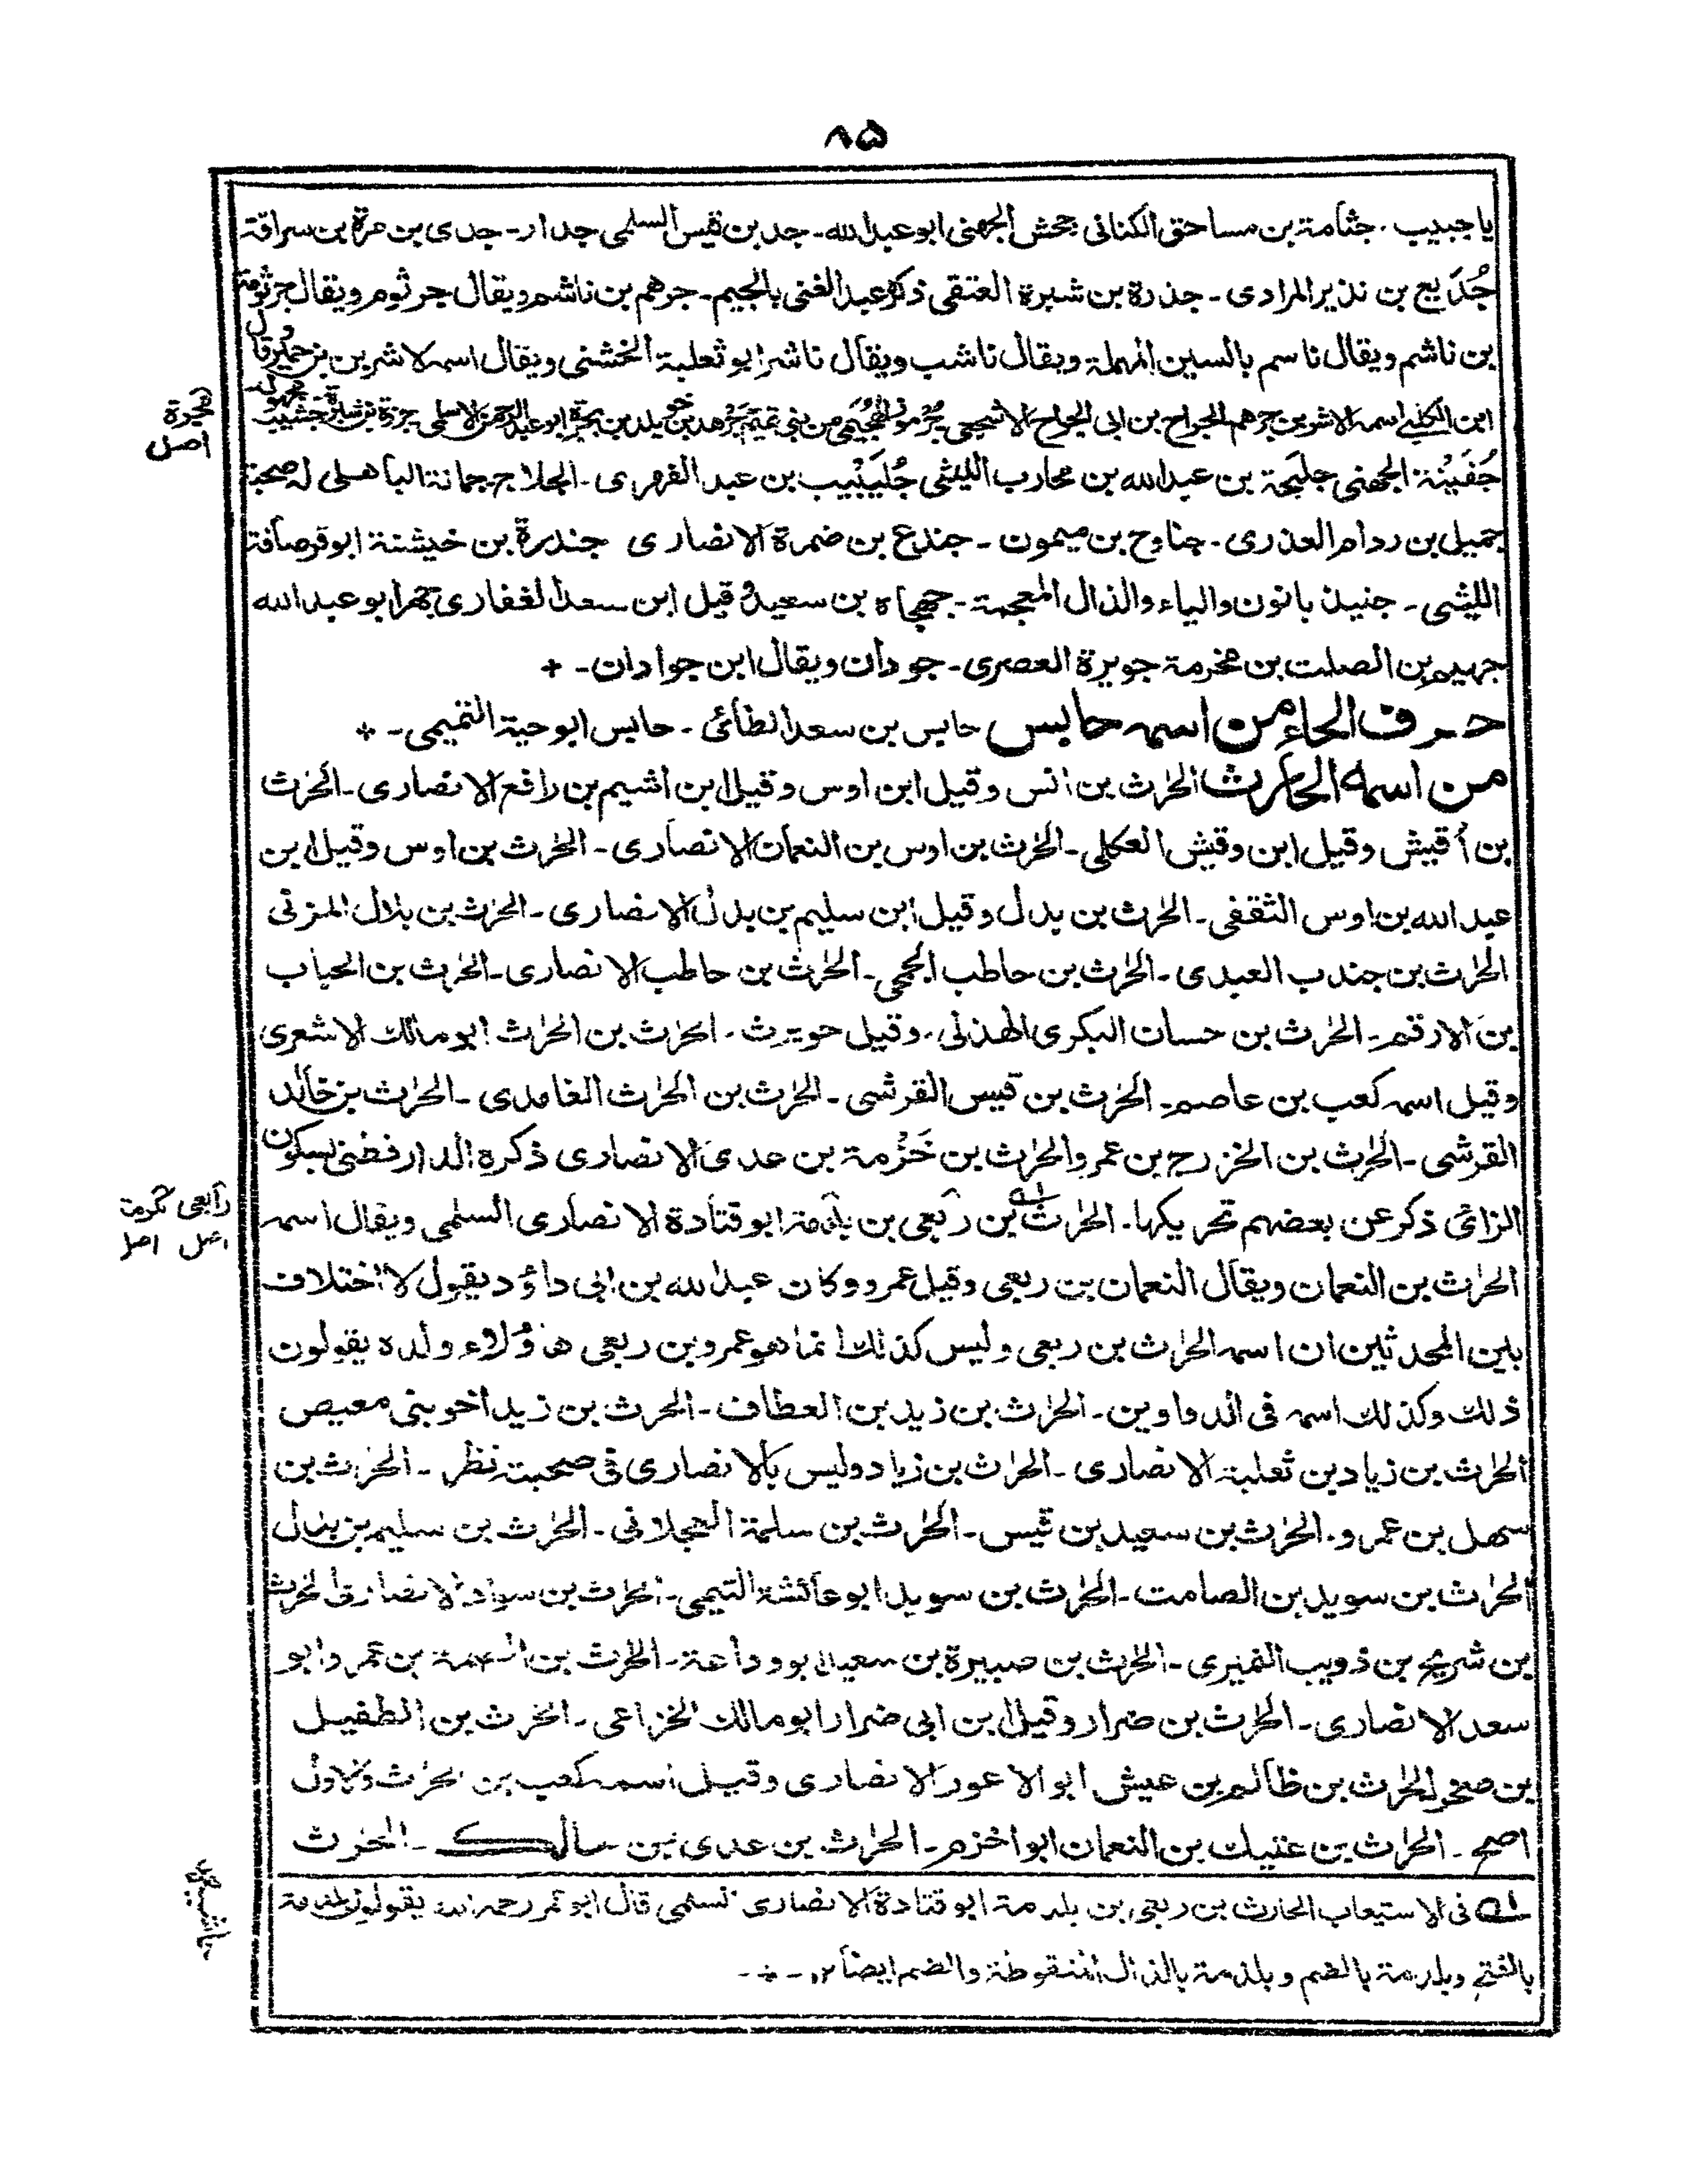 ۸۵
يا جبيب . جثامة بن مساحق الكناني جحش الجهني ابو عبدالله ـ جد بن قيس السلمي جدار ـ جدى بن مرة بن سراقة
جُدَيع بن نذير المرادى ـ جذرة بن شبرة العتقى ذكره عبد الغنى بالجيم ـ جرهم بن ناشم ويقال جرثوم ويقال جرثومة
بن ناشم ويقال ناسم بالسين المهملة ويقال ناشب ويقال ناشر ابو ثعلبة الخشنى ويقال اسمه لاشر بن حمير وقال
ابن الكلبي اسمه الاشر بن جرهم الجراح بن ابى الجراح الاشجعى جُرموز الهُجَيمى من بنى تميم جَرْهد بن خويلد بن بجرة ابو عبد الرحمن الاسلمى
جُفَيْنة الجهنى جليحة بن عبدالله بن محارب الليثى جُلَيْبيب بن عبد الفهرى ـ الجلاح جمانة الباهلى له صحبة
جميل بن ردام العذرى . جناح بن ميمون ـ جندع بن ضمرة الانصارى جندرة بن خيشنة ابو قرصافة
الليثى ـ جنيذ بالنون والياء والذال المعجمة ـ جهجاه بن سعيد وقيل ابن سعد الغفارى جهر ابو عبدالله
جهيم بن الصلت بن مخرمة جويرة العصرى ـ جودان ويقال ابن جوادان ـ +
حرف الحاء من اسمه حابس حابس بن سعد الطائى . حابس ابو حية التميمى ـ +
من اسمه الحارث الحٰرث بن انس وقيل ابن اوس وقيل ابن اشيم بن رافع الانصارى ـ الحٰرث
بن أقيش وقيل ابن وقيش العكلى ـ الحٰرث بن اوس بن النعمان الانصارى ـ الحٰرث بن اوس وقيل ابن
عبد الله بن اوس الثقفى ـ الحٰرث بن بدل وقيل ابن سليم بن بدل الانصارى ـ الحٰرث بن بلال المزنى
الحٰرث بن جندب العبدى ـ الحٰرث بن حاطب الجمحى ـ الحٰرث بن حاطب الانصارى ـ الحٰرث بن الحباب
بن الارقم ـ الحٰرث بن حسان البكرى الهذلى . وقيل حويرث . الحٰرث بن الحٰرث ابو مالك الاشعرى
وقيل اسمه كعب بن عاصم ـ الحٰرث بن قيس القرشى ـ الحٰرث بن الحٰرث الغامدى ـ الحٰرث بن خالد
القرشى ـ الحٰرث بن الخزرج بن عمرو الحٰرث بن خَزْمة بن عدى الانصارى ذكره الدارقطنى بسكون
الزائ ذكر عن بعضهم تحريكها . الحٰرث بن ربعى بن بلدمة ابو قتادة الانصارى السلمى ويقال اسمه
الحٰرث بن النعمان ويقال النعمان بن ربعى وقيل عمرو وكان عبدالله بن ابى داؤد يقول لا اختلاف
بين المحدثين ان اسمه الحٰرث بن ربعى وليس كذلك انما هو عمرو بن ربعى هؤلاء ولده يقولون
ذلك وكذلك اسمه فى الدواوين ـ الحٰرث بن زيد بن العطاف ـ الحٰرث بن زيد اخو بنى معيص
الحٰرث بن زياد بن ثعلبة الانصارى ـ الحٰرث بن زياد وليس بالانصارى فى صحبته نظر ـ الحٰرث بن
سهل بن عمرو . الحٰرث بن سعيد بن قيس ـ الحٰرث بن سلمة العجلانى ـ الحٰرث بن سليم بن بدل
الحٰرث بن سويد بن الصامت ـ الحٰرث بن سويد ابو عائشة التيمى ـ الحٰرث بن سواد الانصارى الحٰرث
بن شريح بن ذويب النميرى ـ الحٰرث بن صبيرة بن سعيد ابو وداعة ـ الحٰرث بن الصمة بن عمرو ابو
سعد الانصارى ـ الحٰرث بن ضرار وقيل ابن ابى ضرار ابو مالك الخزاعى ـ الحٰرث بن الطفيل
بن صخر الحٰرث بن ظالم بن عيش ابو الاعور الانصارى وقيل اسمه كعب بن الحٰرث والاول
اصح ـ الحٰرث بن عتيك بن النعمان ابو اخزم ـ الحٰرث بن عدى بن مالك ـ الحٰرث
فى الاستيعاب الحارث بن ربعى بن بلدمة ابو قتادة الانصارى السلمى قال ابو عمر رحمه الله يقولون بلدمة
بالفتح وبلدمة بالضم وبلذمة بالذال المنقوطة والضم ايضا ۱۲ ـ + ـ
بجرة
اصل
اصل اصل